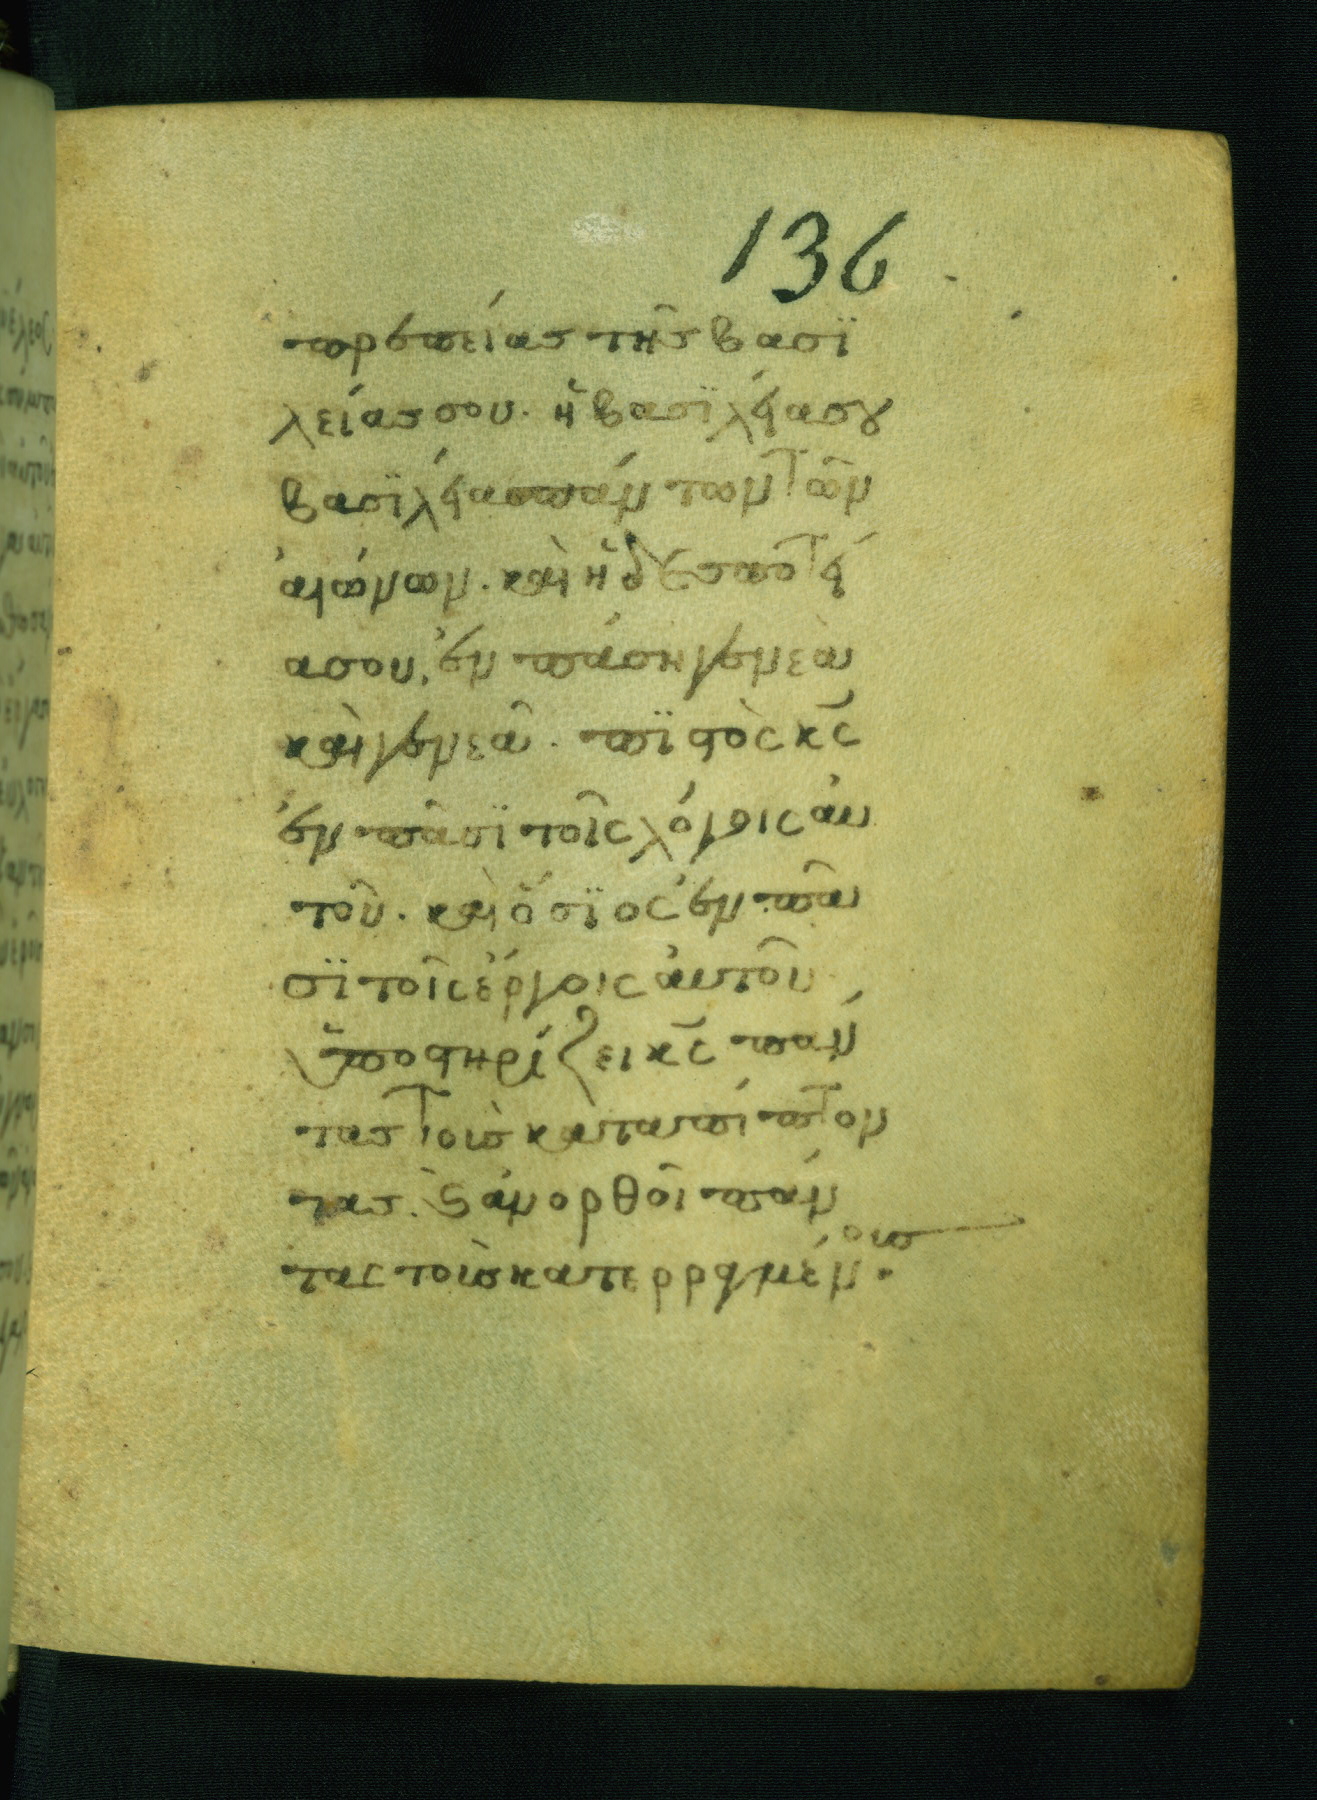 136
πρεπείας τῆς βασϊ
λείας σου· ἡ βασϊλεία σου
βασϊλεία πάντων τῶν
αἰώνων· καὶ ἡ δεσποτεί
α σου, ἐν πάσῃ γενεὰ
καὶ γενεᾶ· πϊστὸς κς
ἐν πᾶσϊ τοῖς λόγοις αὐ
τοῦ· καὶ ὅσϊος ἐν πᾶ
σϊ τοῖς ἔργοις αὐτοῦ
ὑποστηρίζει κς πάν
τας τοὺς καταπίπτον
τας· καὶ ἀνορθοῖ πάν
τας τοὺς κατερραγμένους·